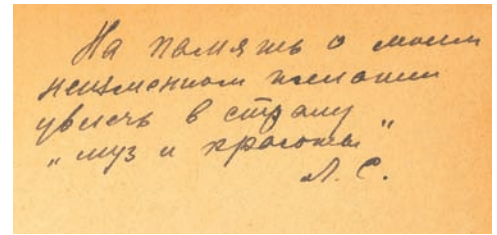 На память о моем
неизменном желании
увлечь в страну
„муз и красоты"
Л. С.